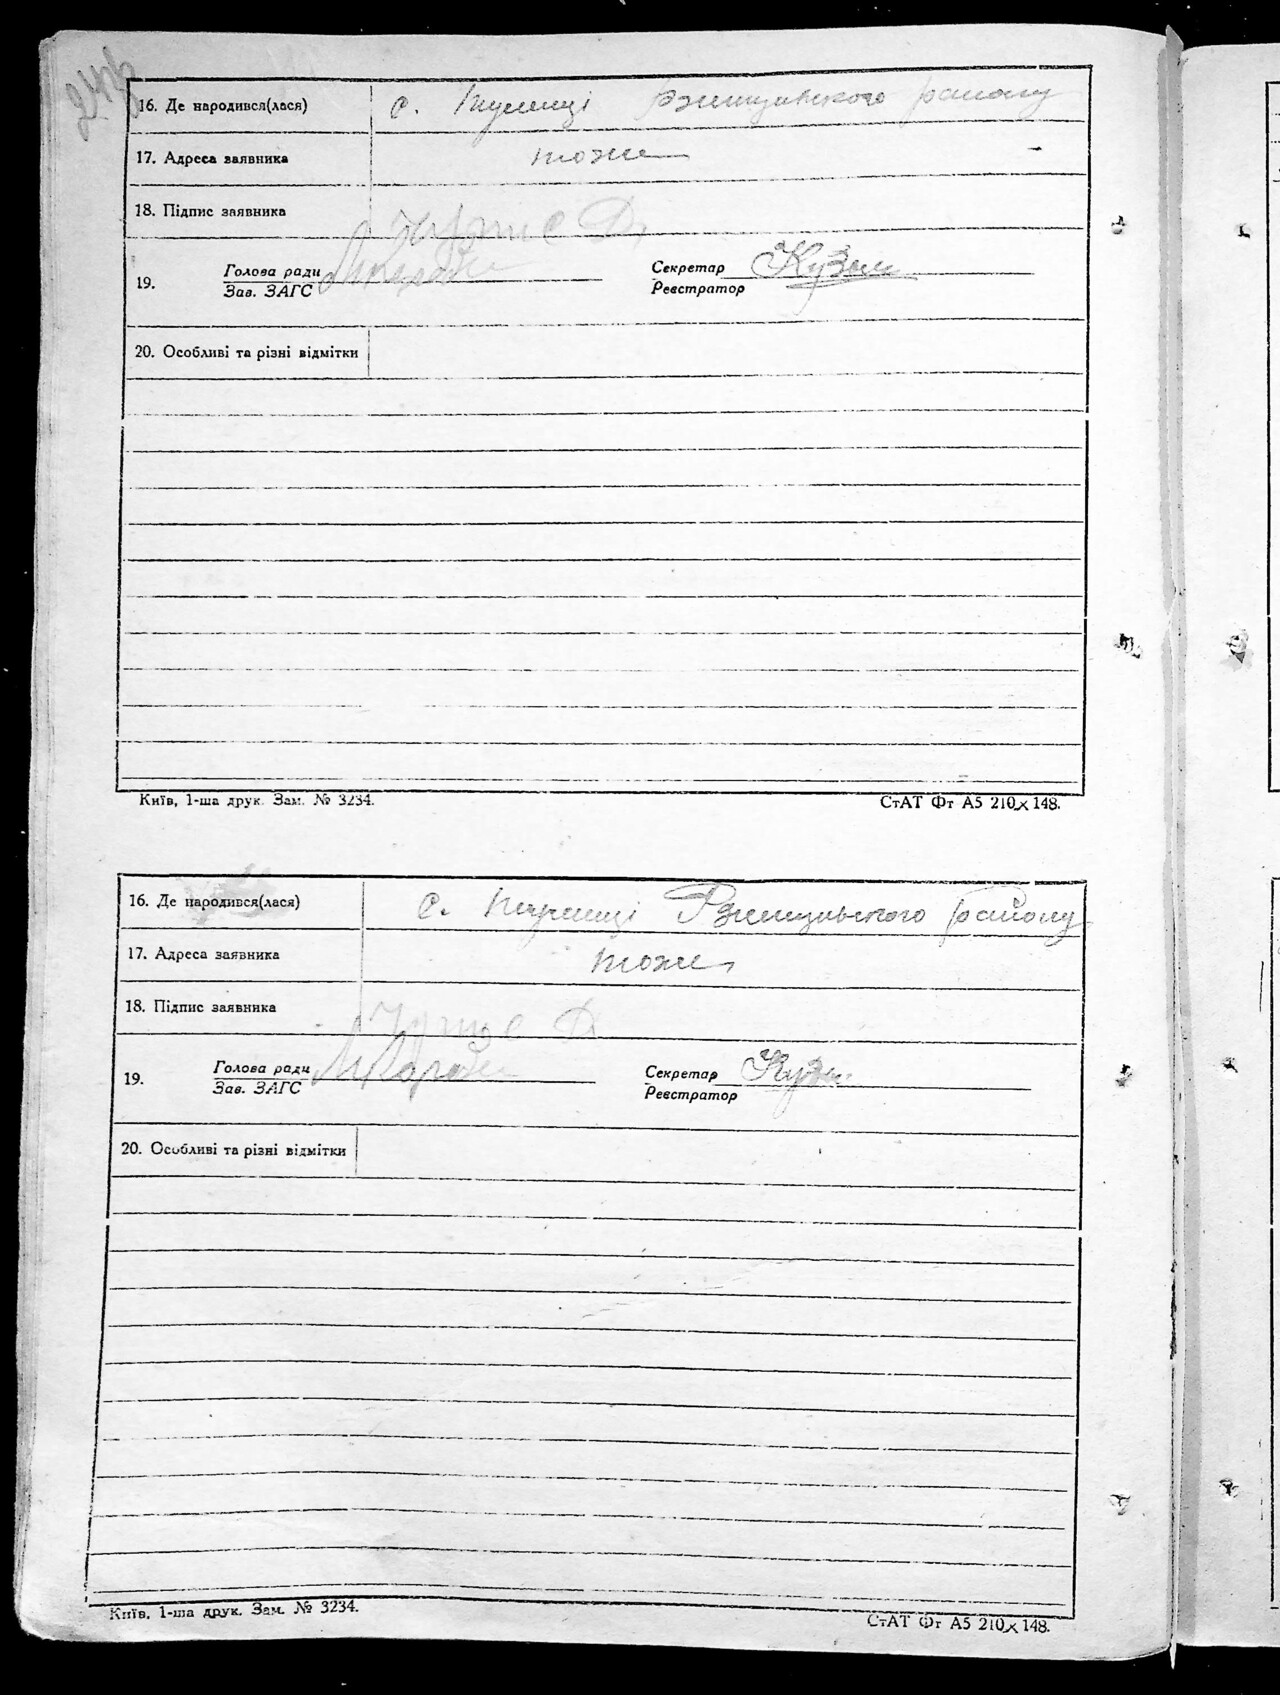 16. Де народився(лася) с. Ржищівського району
17. Адреса заявника тоже
18. Підпис заявника
19. Голова ради Секретар
Зав. ЗАГС Реєстратор
20. Особливі та різні відмітки
Київ, 1-ша друк. Зам. № 3234.
СтАТ Фт А5 210×148.
16. Де народився(лася) с. Ржищівського району
17. Адреса заявника тоже
18. Підпис заявника
19. Голова ради Секретар
Зав. ЗАГС Реєстратор
20. Особливі та різні відмітки
Київ, 1-ша друк. Зам. № 3234.
СтАТ Фт А5 210×148.